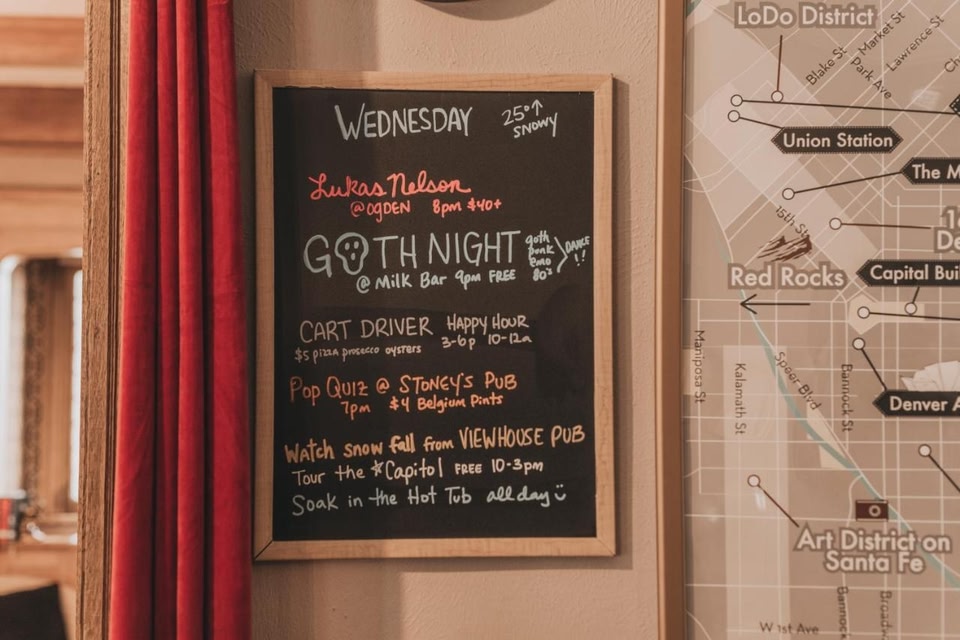 WEDNESDAY 25°↑ SNOWY
Lukas Nelson
@OGDEN 8pm $40+
GOTH NIGHT goth punk emo 80's DANCE!!
@ Milk Bar 9pm FREE
CART DRIVER HAPPY HOUR
$5 pizza prosecco oysters 3-6p 10-12a
Pop Quiz @ STONEY'S PUB
7pm $4 Belgium Pints
Watch snow fall from VIEWHOUSE PUB
Tour the Capitol FREE 10-3pm
Soak in the Hot Tub all day
LoDo District
Blake St
Market St
Park Ave
Lawrence St
Union Station
The M
15th St
Red Rocks
Capital Bui
Mariposa St
Kalamath St
Speer Blvd
Bannock St
Denver A
Art District on
Santa Fe
W 1st Ave